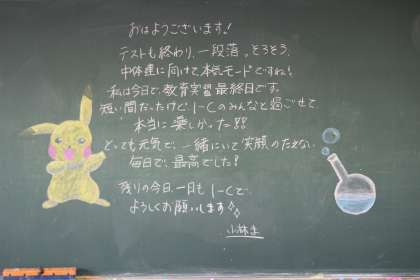 おはようございます!
テストも終わり、一段落。そろそろ、
中体連に向けて、本気モードですね!
私は今日で、教育実習最終日です。
短い間だったけど、1-Cのみんなと過ごせて、
本当に楽しかった!!
とっても元気で、一緒にいて笑顔のたえない
毎日で、最高でした!
残りの今日、一日も1-Cで、
よろしくお願いします
小林